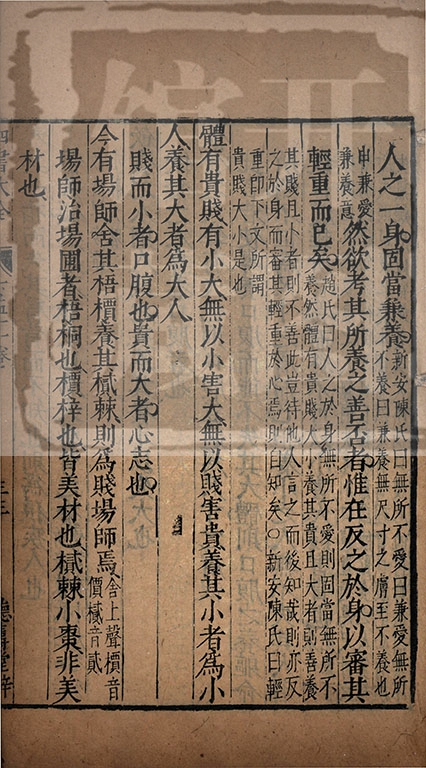 人之一身固當兼養新安陳氏曰無所不愛曰兼愛無所
不養曰兼養無尺寸之膚至不養也
申兼愛
兼養意然欲考其所養之善否者惟在反之於身以審其
輕重而已矣趙氏曰人之於身無所不愛則固當無所不
養然體有貴賤大小養其貴且大者則善養
其賤且小者則不善此豈待他人言之而後知哉則亦反
之於身而審其輕重於心焉則自知矣○新安陳氏曰輕
重即下文所謂
貴賤大小是也
體有貴賤有小大無以小害大無以賤害貴養其小者為小
人養其大者為大人
賤而小者口腹也貴而大者心志也
今有場師舍其梧檟養其樲棘則為賤場師焉舍上聲檟音
價樲音貳
場師治場圃者梧桐也檟梓也皆美材也樲棘小棗非美
材也
四書大全